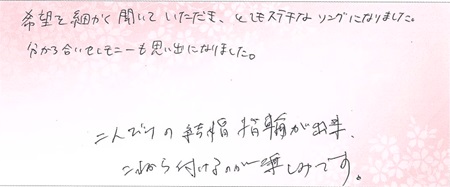 希望を細かく聞いていただき、とてもステキなリングになりました。
分かち合いセレモニーも思い出になりました。
二人だけの結婚指輪が出来、
これから付けるのが楽しみです。